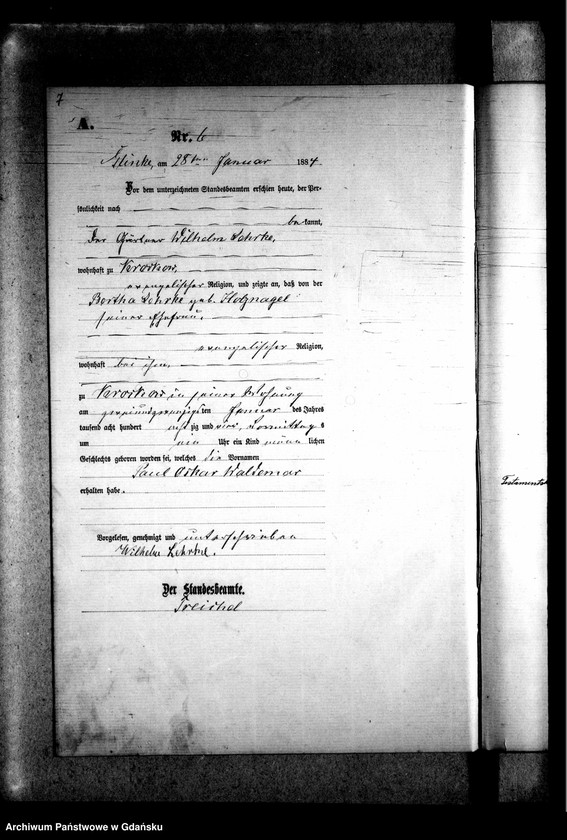 7
A.
Nr. 6
Glinke, am 28ten Januar 1884.
Vor dem unterzeichneten Standesbeamten erschien heute, der Per-
sönlichkeit nach
be kannt,
der Gärtner Wilhelm Lehrke,
wohnhaft zu Krockow,
evangelischer Religion, und zeigte an, daß von der
Bertha Lehrke geb. Holznagel
seiner Ehefrau,
evangelischer Religion,
wohnhaft bei ihm,
zu Krockow in seiner Wohnung
am zweiundzwanzigsten Januar des Jahres
tausend acht hundert acht zig und vier, Vormittag s
um ein Uhr ein Kind männ lichen
Geschlechts geboren worden sei, welches die Vornamen
Paul Oskar Waldemar
erhalten habe.
Vorgelesen, genehmigt und unterschrieben
Wilhelm Lehrke.
Der Standesbeamte.
Treichel
Testaments
Archiwum Państwowe w Gdańsku